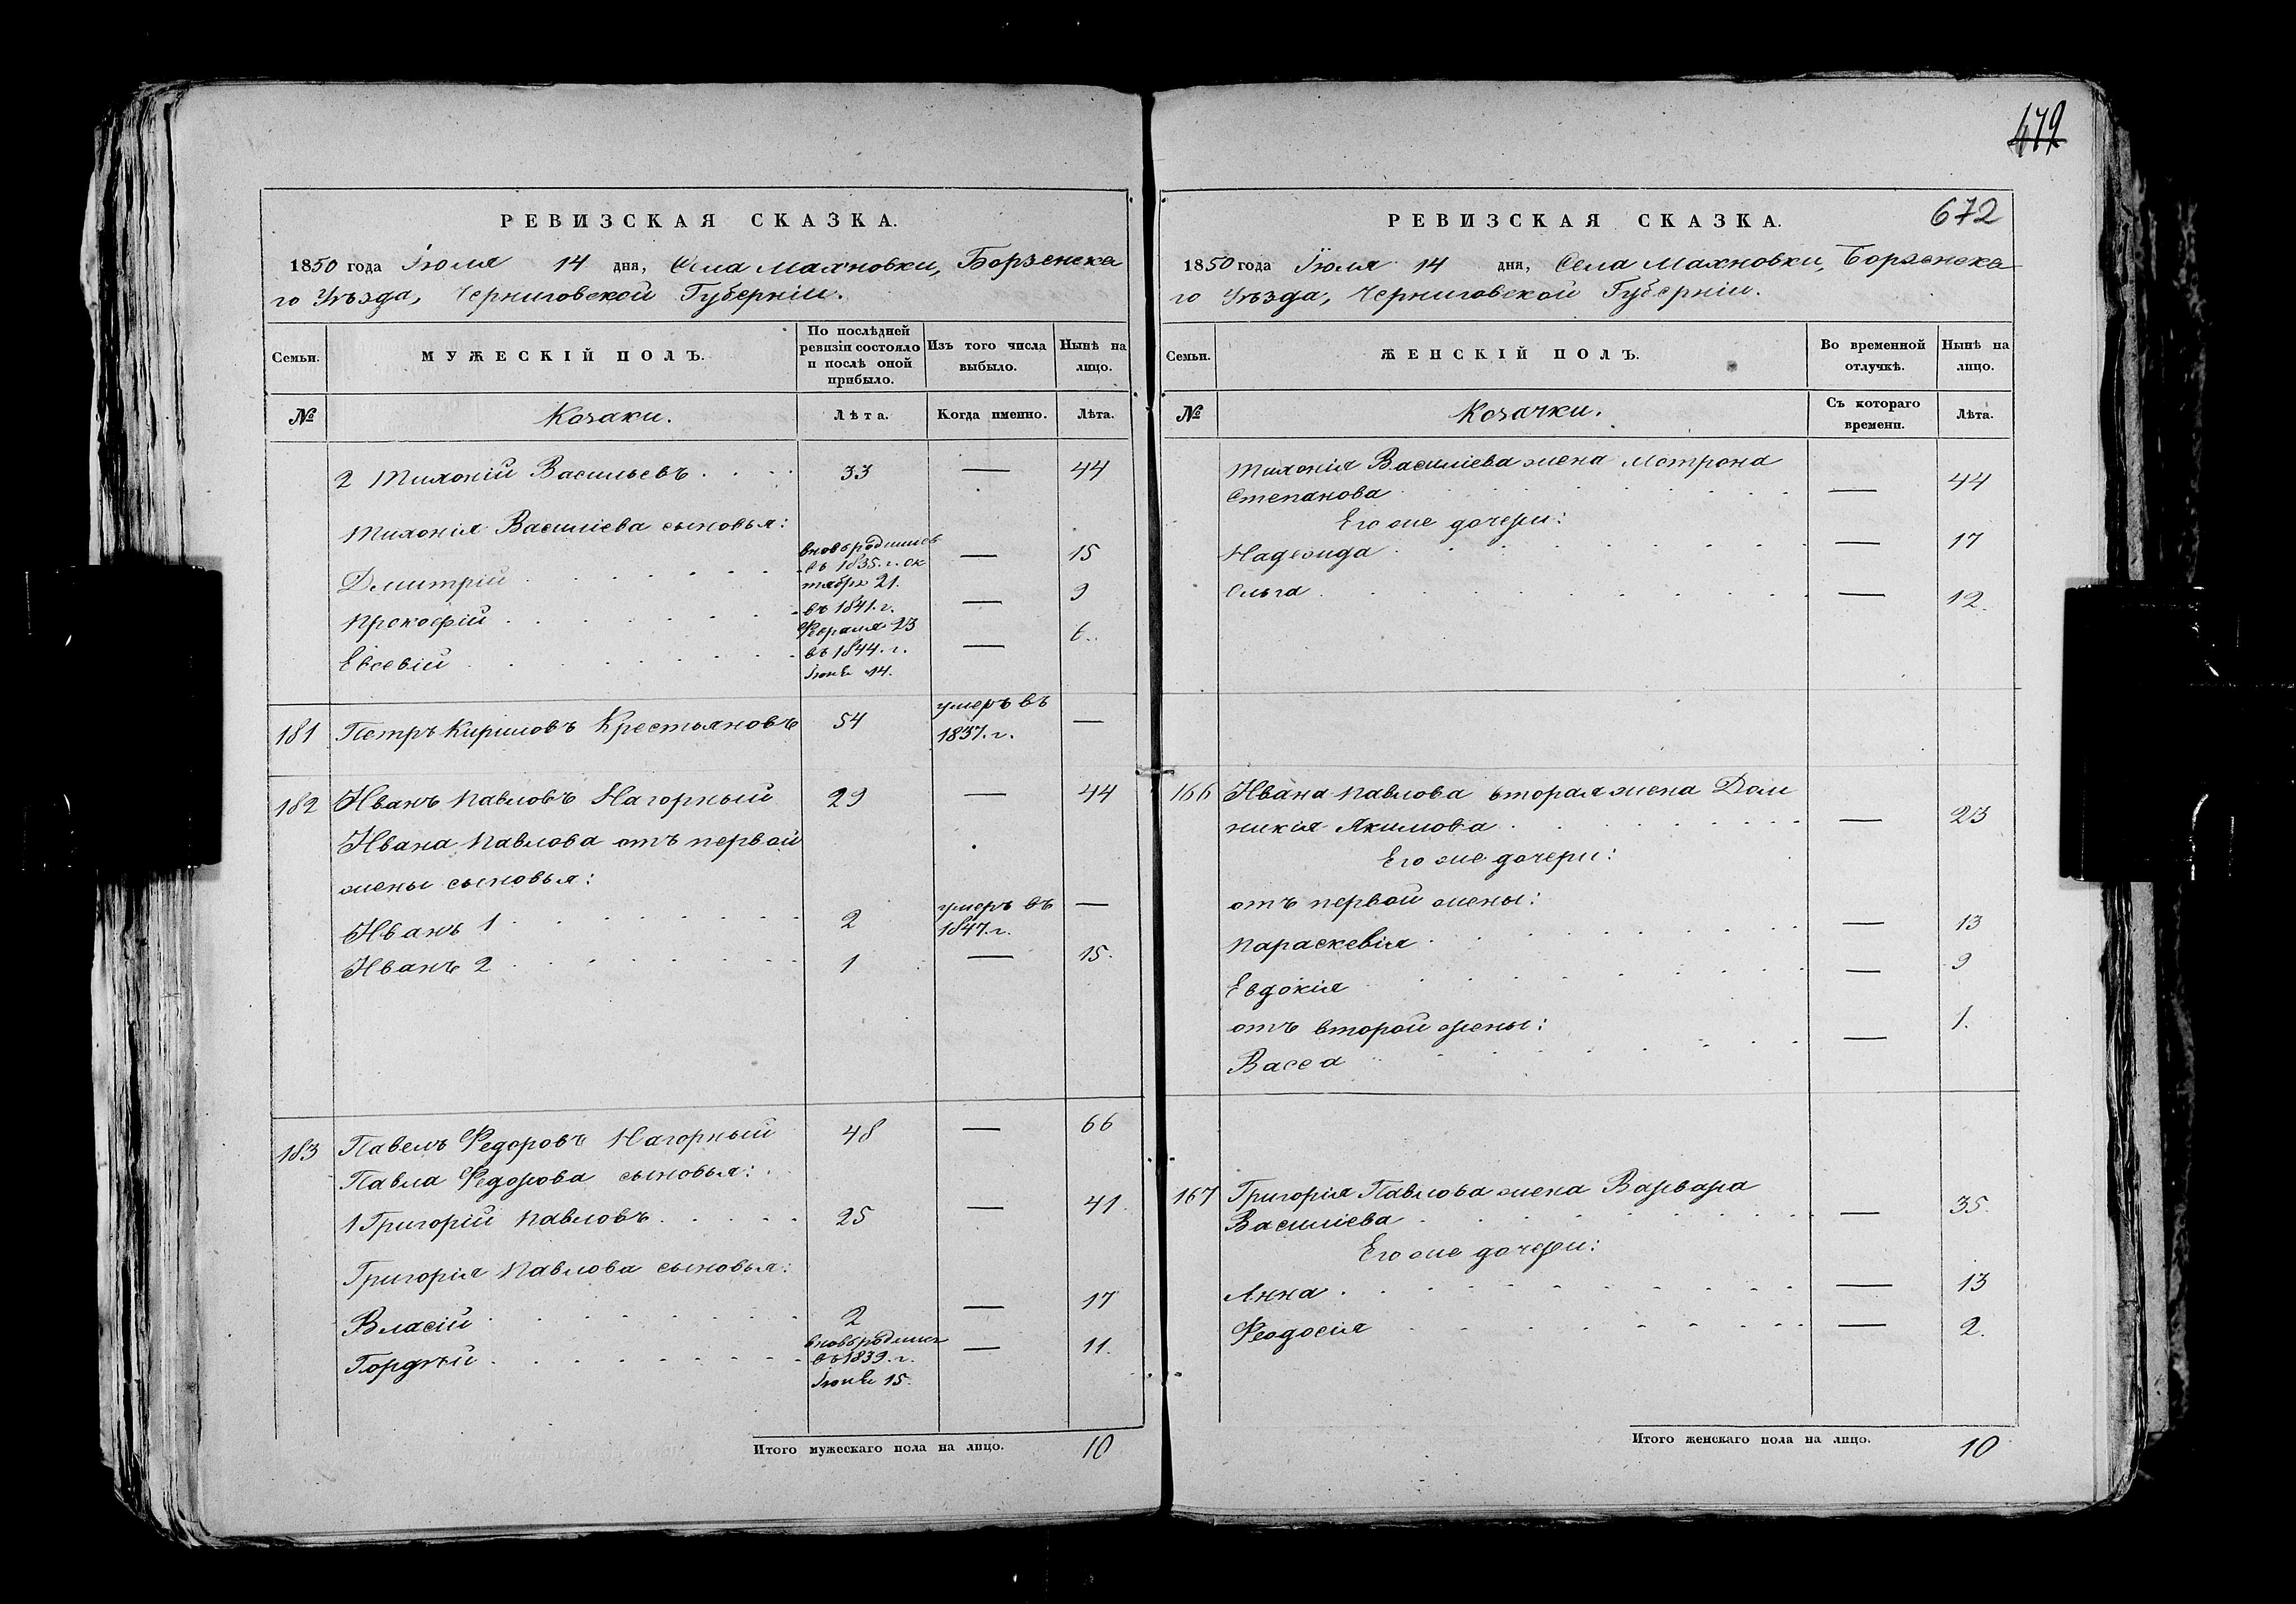 479
РЕВИЗСКАЯ СКАЗКА.
1850 года Іюля 14 дня, Села Махновки, Борзенска
го Уѣзда, Черниговской Губерніи.
Семьи.
МУЖЕСКІЙ ПОЛЪ.
По послѣдней ревизіи состояло и послѣ оной прибыло.
Изъ того числа выбыло.
Нынѣ на лицо.
№ Козаки. Лѣта. Когда именно. Лѣта.
2 Тихоній Васильевъ 33 — 44
Тихонія Василіева сыновья:
Дмитрій вновь родился въ 1835. г. ок тября 21. — 15
Прокофій въ 1841. г. Февраля 23 — 9
Евсевій въ 1844. г. Іюня 14. — 6.
181 Петръ Кириловъ Крестьяновъ 54 умеръ въ 1837. г. —
182 Иванъ Павловъ Нагорный 29 — 44
Ивана Павлова отъ первой
жены сыновья:
Иванъ 1 2 умеръ въ 1847. г. —
Иванъ 2 1 — 15.
183 Павелъ Федоровъ Нагорный 48 — 66
Павла Федорова сыновья:
1 Григорій Павловъ 25 — 41.
Григорія Павлова сыновья:
Власій 2 — 17
Гордѣй вновь родился въ 1839. г. Іюня 15. — 11.
Итого мужескаго пола на лицо. 10
РЕВИЗСКАЯ СКАЗКА. 672
1850 года Іюля 14 дня, Села Махновки, Борзенска
го Уѣзда, Черниговской Губерніи.
Семьи.
ЖЕНСКІЙ ПОЛЪ.
Во временной отлучкѣ.
Нынѣ на лицо.
№ Козачки. Съ котораго времени. Лѣта.
Тихонія Василіева жена Мотрона
Степанова — 44
Его же дочери:
Надежда — 17
Ольга — 12.
166 Ивана Павлова вторая жена Дом
никія Якимова — 23
Его же дочери:
отъ первой жены:
Параскевія — 13
Евдокія — 9
отъ второй жены:
Васса — 1.
167 Григорія Павлова жена Варвара
Василіева — 35.
Его же дочери:
Анна — 13
Феодосія — 2.
Итого женскаго пола на лицо. 10